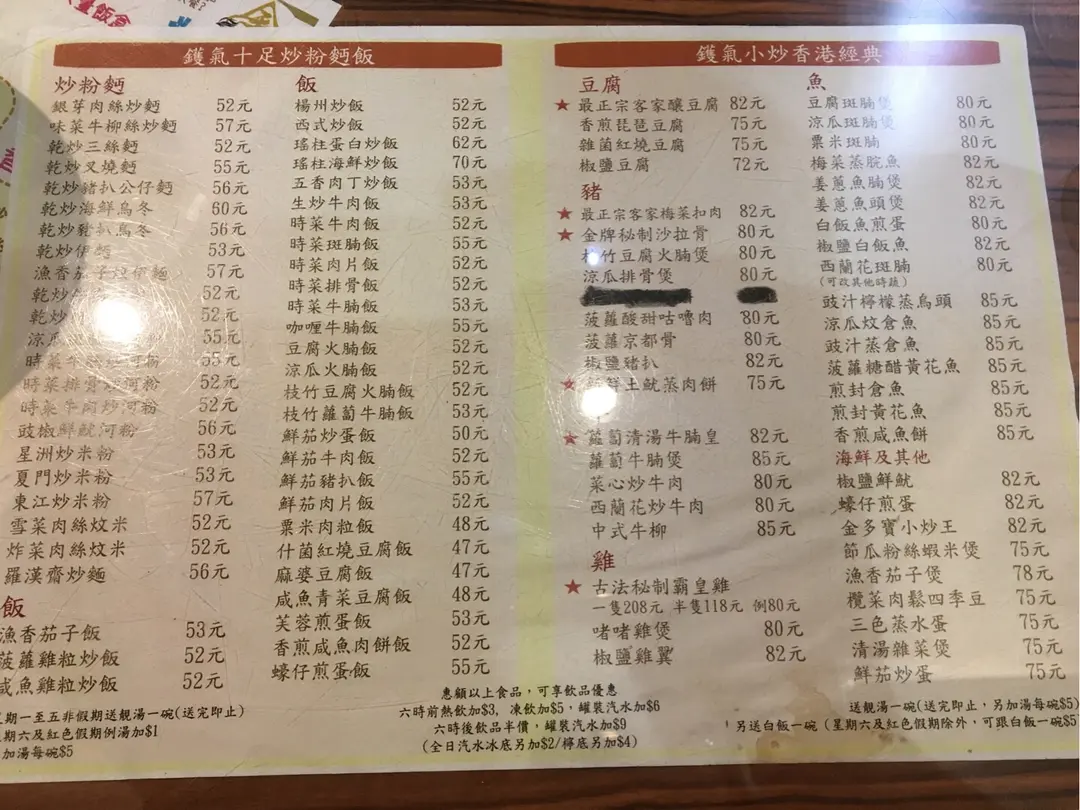 鑊氣十足炒粉麵飯
炒粉麵
銀芽肉絲炒麵 52元
味菜牛柳絲炒麵 57元
乾炒三絲麵 52元
乾炒叉燒麵 55元
乾炒豬扒公仔麵 56元
乾炒海鮮烏冬 60元
乾炒豬扒烏冬 56元
乾炒伊麵 53元
漁香茄子炆伊麵 57元
乾炒 52元
乾炒 52元
涼瓜 55元
時菜牛 河粉 55元
時菜排骨炒河粉 52元
時菜牛腩炒河粉 52元
豉椒鮮魷河粉 56元
星洲炒米粉 53元
夏門炒米粉 53元
東江炒米粉 57元
雪菜肉絲炆米 52元
炸菜肉絲炆米 52元
羅漢齋炒麵 56元
飯
漁香茄子飯 53元
菠蘿雞粒炒飯 52元
咸魚雞粒炒飯 52元
飯
楊州炒飯 52元
西式炒飯 52元
瑤柱蛋白炒飯 62元
瑤柱海鮮炒飯 70元
五香肉丁炒飯 53元
生炒牛肉飯 53元
時菜牛肉飯 52元
時菜斑腩飯 55元
時菜肉片飯 52元
時菜排骨飯 52元
時菜牛腩飯 53元
咖喱牛腩飯 55元
豆腐火腩飯 52元
涼瓜火腩飯 52元
枝竹豆腐火腩飯 52元
枝竹蘿蔔牛腩飯 53元
鮮茄炒蛋飯 50元
鮮茄牛肉飯 52元
鮮茄豬扒飯 55元
鮮茄肉片飯 52元
粟米肉粒飯 48元
什菌紅燒豆腐飯 47元
麻婆豆腐飯 47元
咸魚青菜豆腐飯 48元
芙蓉煎蛋飯 53元
香煎咸魚肉餅飯 52元
蠔仔煎蛋飯 55元
星期一至五非假期送靚湯一碗(送完即止)
星期六及紅色假期例湯加$1
加湯每碗$5
惠顧以上食品，可享飲品優惠
六時前熱飲加$3, 凍飲加$5，罐裝汽水加$6
六時後飲品半價，罐裝汽水加$9
(全日汽水冰底另加$2/檸底另加$4)
鑊氣小炒香港經典
豆腐
★最正宗客家釀豆腐 82元
香煎琵琶豆腐 75元
雜菌紅燒豆腐 75元
椒鹽豆腐 72元
豬
★最正宗客家梅菜扣肉 82元
★金牌秘制沙拉骨 80元
枝竹豆腐火腩煲 80元
涼瓜排骨煲 80元
菠蘿酸甜咕嚕肉 80元
菠蘿京都骨 80元
椒鹽豬扒 82元
★ 鮮土魷蒸肉餅 75元
★蘿蔔清湯牛腩皇 82元
蘿蔔牛腩煲 85元
菜心炒牛肉 80元
西蘭花炒牛肉 80元
中式牛柳 85元
雞
★古法秘制霸皇雞
一隻208元 半隻118元 例80元
啫啫雞煲 80元
椒鹽雞翼 82元
魚
豆腐斑腩煲 80元
涼瓜斑腩煲 80元
粟米斑腩 80元
梅菜蒸脘魚 82元
姜蔥魚腩煲 82元
姜蔥魚頭煲 82元
白飯魚煎蛋 80元
椒鹽白飯魚 82元
西蘭花斑腩 80元
(可改其他時蔬)
豉汁檸檬蒸烏頭 85元
涼瓜炆倉魚 85元
豉汁蒸倉魚 85元
菠蘿糖醋黃花魚 85元
煎封倉魚 85元
煎封黃花魚 85元
香煎咸魚餅 85元
海鮮及其他
椒鹽鮮魷 82元
蠔仔煎蛋 82元
金多寶小炒王 82元
節瓜粉絲蝦米煲 75元
漁香茄子煲 78元
欖菜肉鬆四季豆 75元
三色蒸水蛋 75元
清湯雜菜煲 75元
鮮茄炒蛋 75元
送靚湯一碗(送完即止，另加湯每碗$5)
另送白飯一碗 (星期六及紅色假期除外，可跟白飯一碗$5)